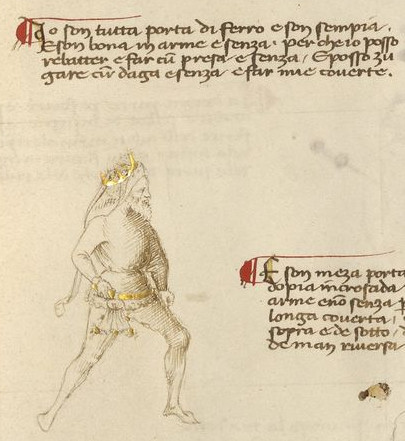 Io son tutta porta di ferro e son sempia.
E son bona in arme e senza. perche io posso
rebatter e far cũ presa e senza / E posso zu
gare cũ daga e senza e far mie coverte.
E son meza porta
dopia incrosada
arme e nõ senza
longa coverta /
sopra e de sotto /
de man riversa